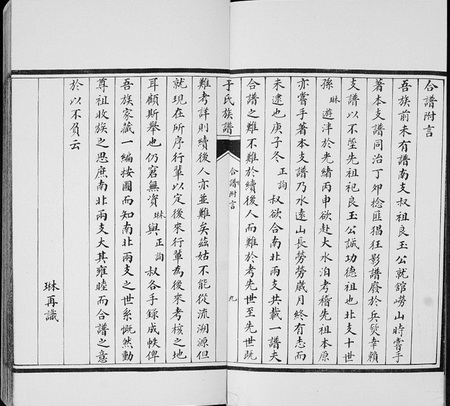 合譜附言
吾族前未有譜南支叔祖良玉公就館嶗山時嘗手
著本支譜同治丁卯捻匪猖狂影譜廢於兵燹幸賴
支譜以不墜先祖祀良玉公誠功德祖也北支十世
孫琳遊泮於光緒丙申欲赴大水泊考稽先祖本原
亦嘗手著本支譜乃水遠山長勞勞歲月終有志而
未逮也庚子冬正詢叔欲合南北兩支共載一譜夫
合譜之難不難於續後人而難於考先世至先世既
于氏族譜
合譜附言
九
難考詳則續後人亦並難矣茲姑不能從流溯源但
就現在所序行輩以定後來行輩為後來考核之地
耳顧斯舉也仍窘無資琳與正詢叔各手錄成帙俾
吾族家藏一編按圖而知南北兩支之世系慨然動
尊祖收族之思庶南北兩支大其雍睦而合譜之意
於以不負云
琳再識